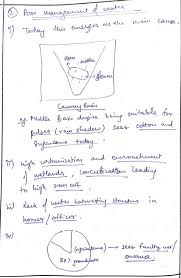 ① Poor management of water
i) Today this emerges as the main cause.
Cauvery Basin
eg Middle Basin despite being suitable for
pulses (rain shadow) sees cotton and
sugarcane today.
ii) high urbanisation and encroachment
of wetlands, concretization leading
to high run off.
iii) lack of water harvesting structure in
homes / offices.
iv)
80%
groundwater
(agriculture) → sees faulty use/
overuse